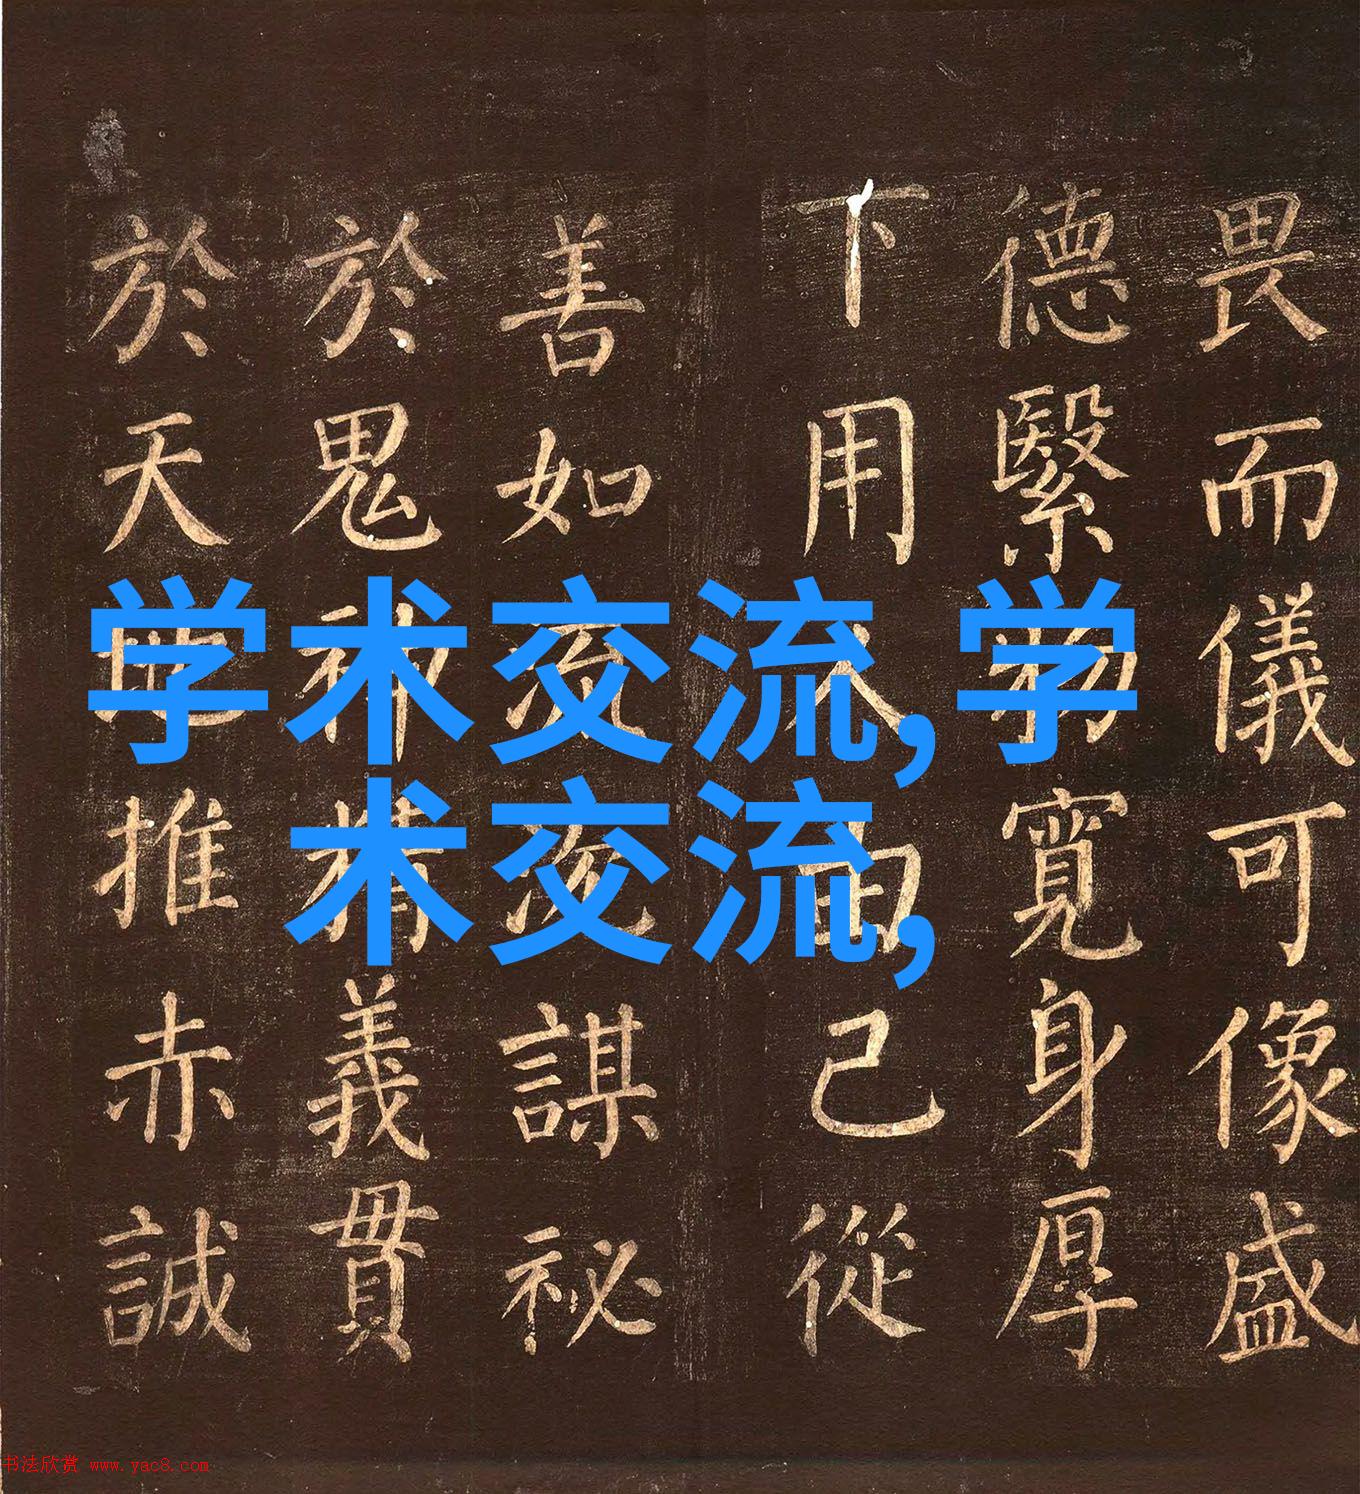 畏而儀可像盛
德繄物寬身厚
下用人由己從
善如流沈謀祕
於鬼神精義貫
於天地推赤誠
学术交流,学
术交流,
书法欣赏 www.yac8.com